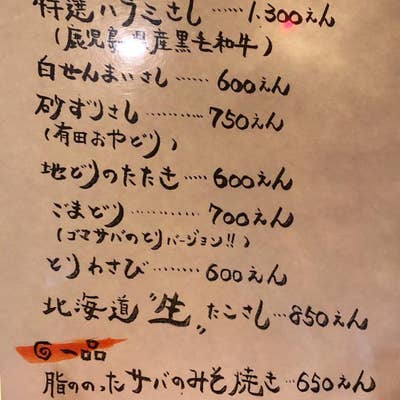 特選ハラミさし……1,300えん
(鹿児島県産黒毛和牛)
白せんまいさし……600えん
砂ずりさし……750えん
(有田おやどり)
地どりのたたき……600えん
ごまどり……700えん
(ゴマサバのとりバージョン!!)
とりわさび……600えん
北海道"生"たこさし…850えん
一品
脂ののったサバのみそ焼き…650えん